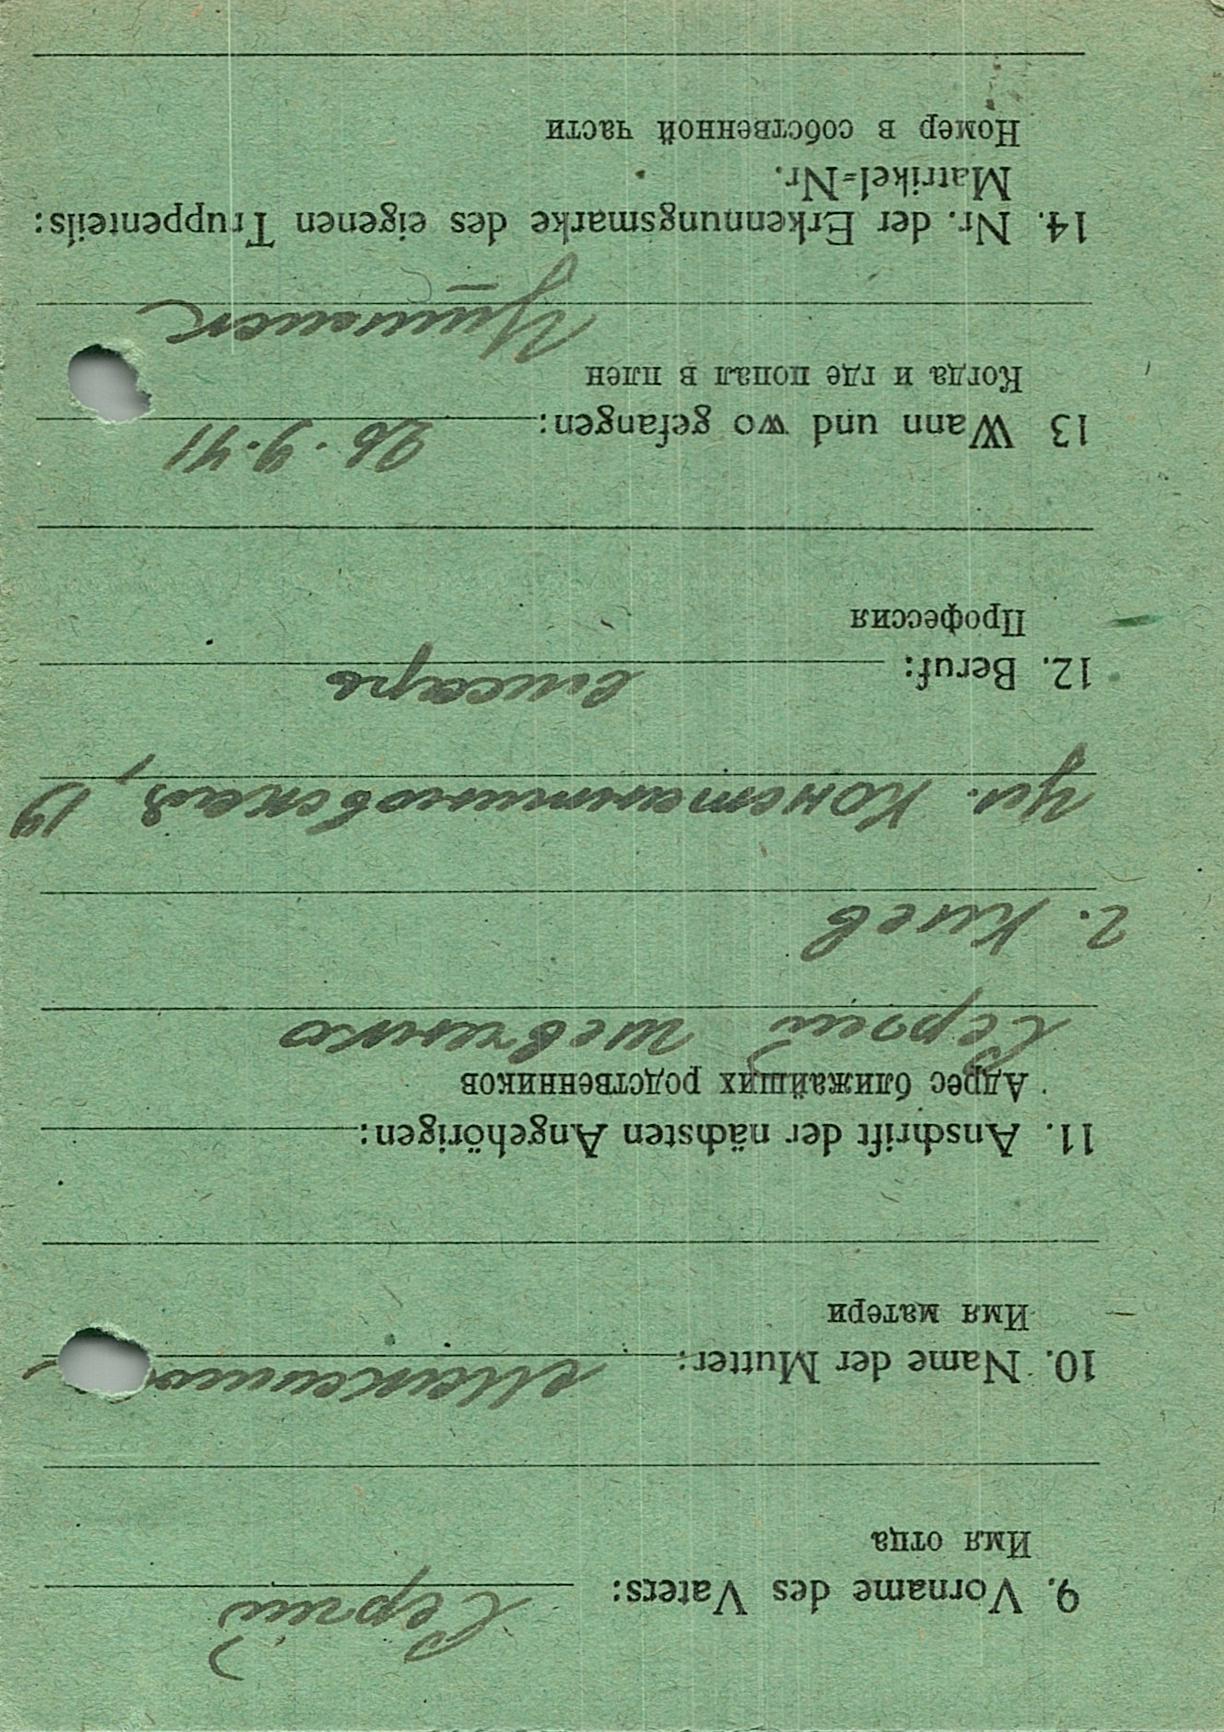 9. Vorname des Vaters: Сергій
Имя отца
10. Name der Mutter:
Имя матери
11. Anschrift der nächsten Angehörigen:
Адрес ближайших родственников
Сергій Шевченко
г. Киев
ул. Константиновская, 19
12. Beruf: слесарь
Профессия
13 Wann und wo gefangen: 26.9.41
Когда и где попал в плен
14. Nr. der Erkennungsmarke des eigenen Truppenteils:
Matrikel-Nr.
Номер в собственной части